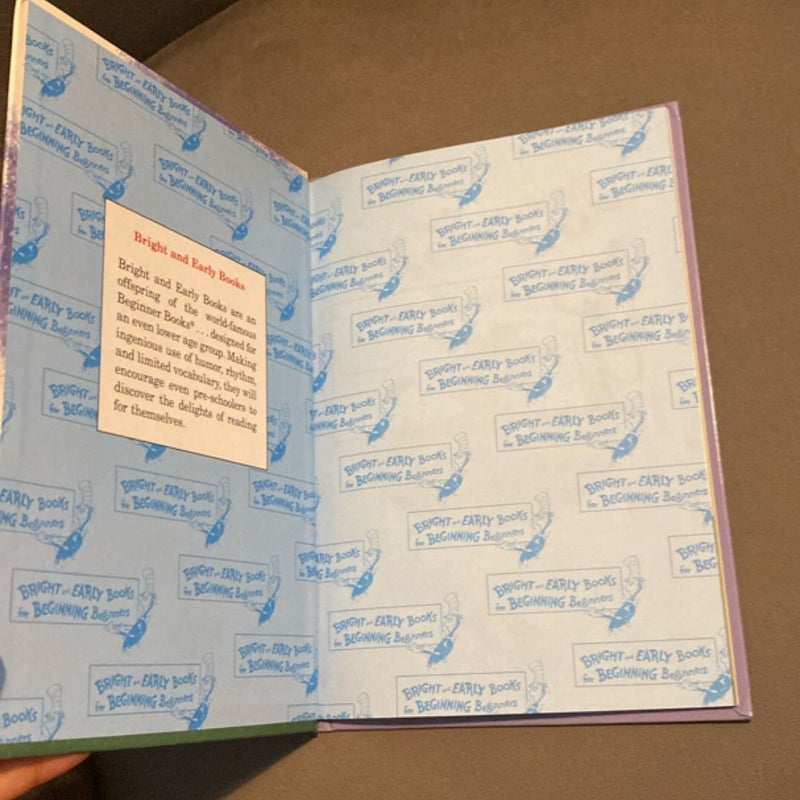 Bright and Early Books
Bright and Early Books are an
offspring of the world-famous
Beginner Books® . . . designed for
an even lower age group. Making
ingenious use of humor, rhythm,
and limited vocabulary, they will
encourage even pre-schoolers to
discover the delights of reading
for themselves.
BRIGHT and EARLY BOOKS
for BEGINNING Beginners